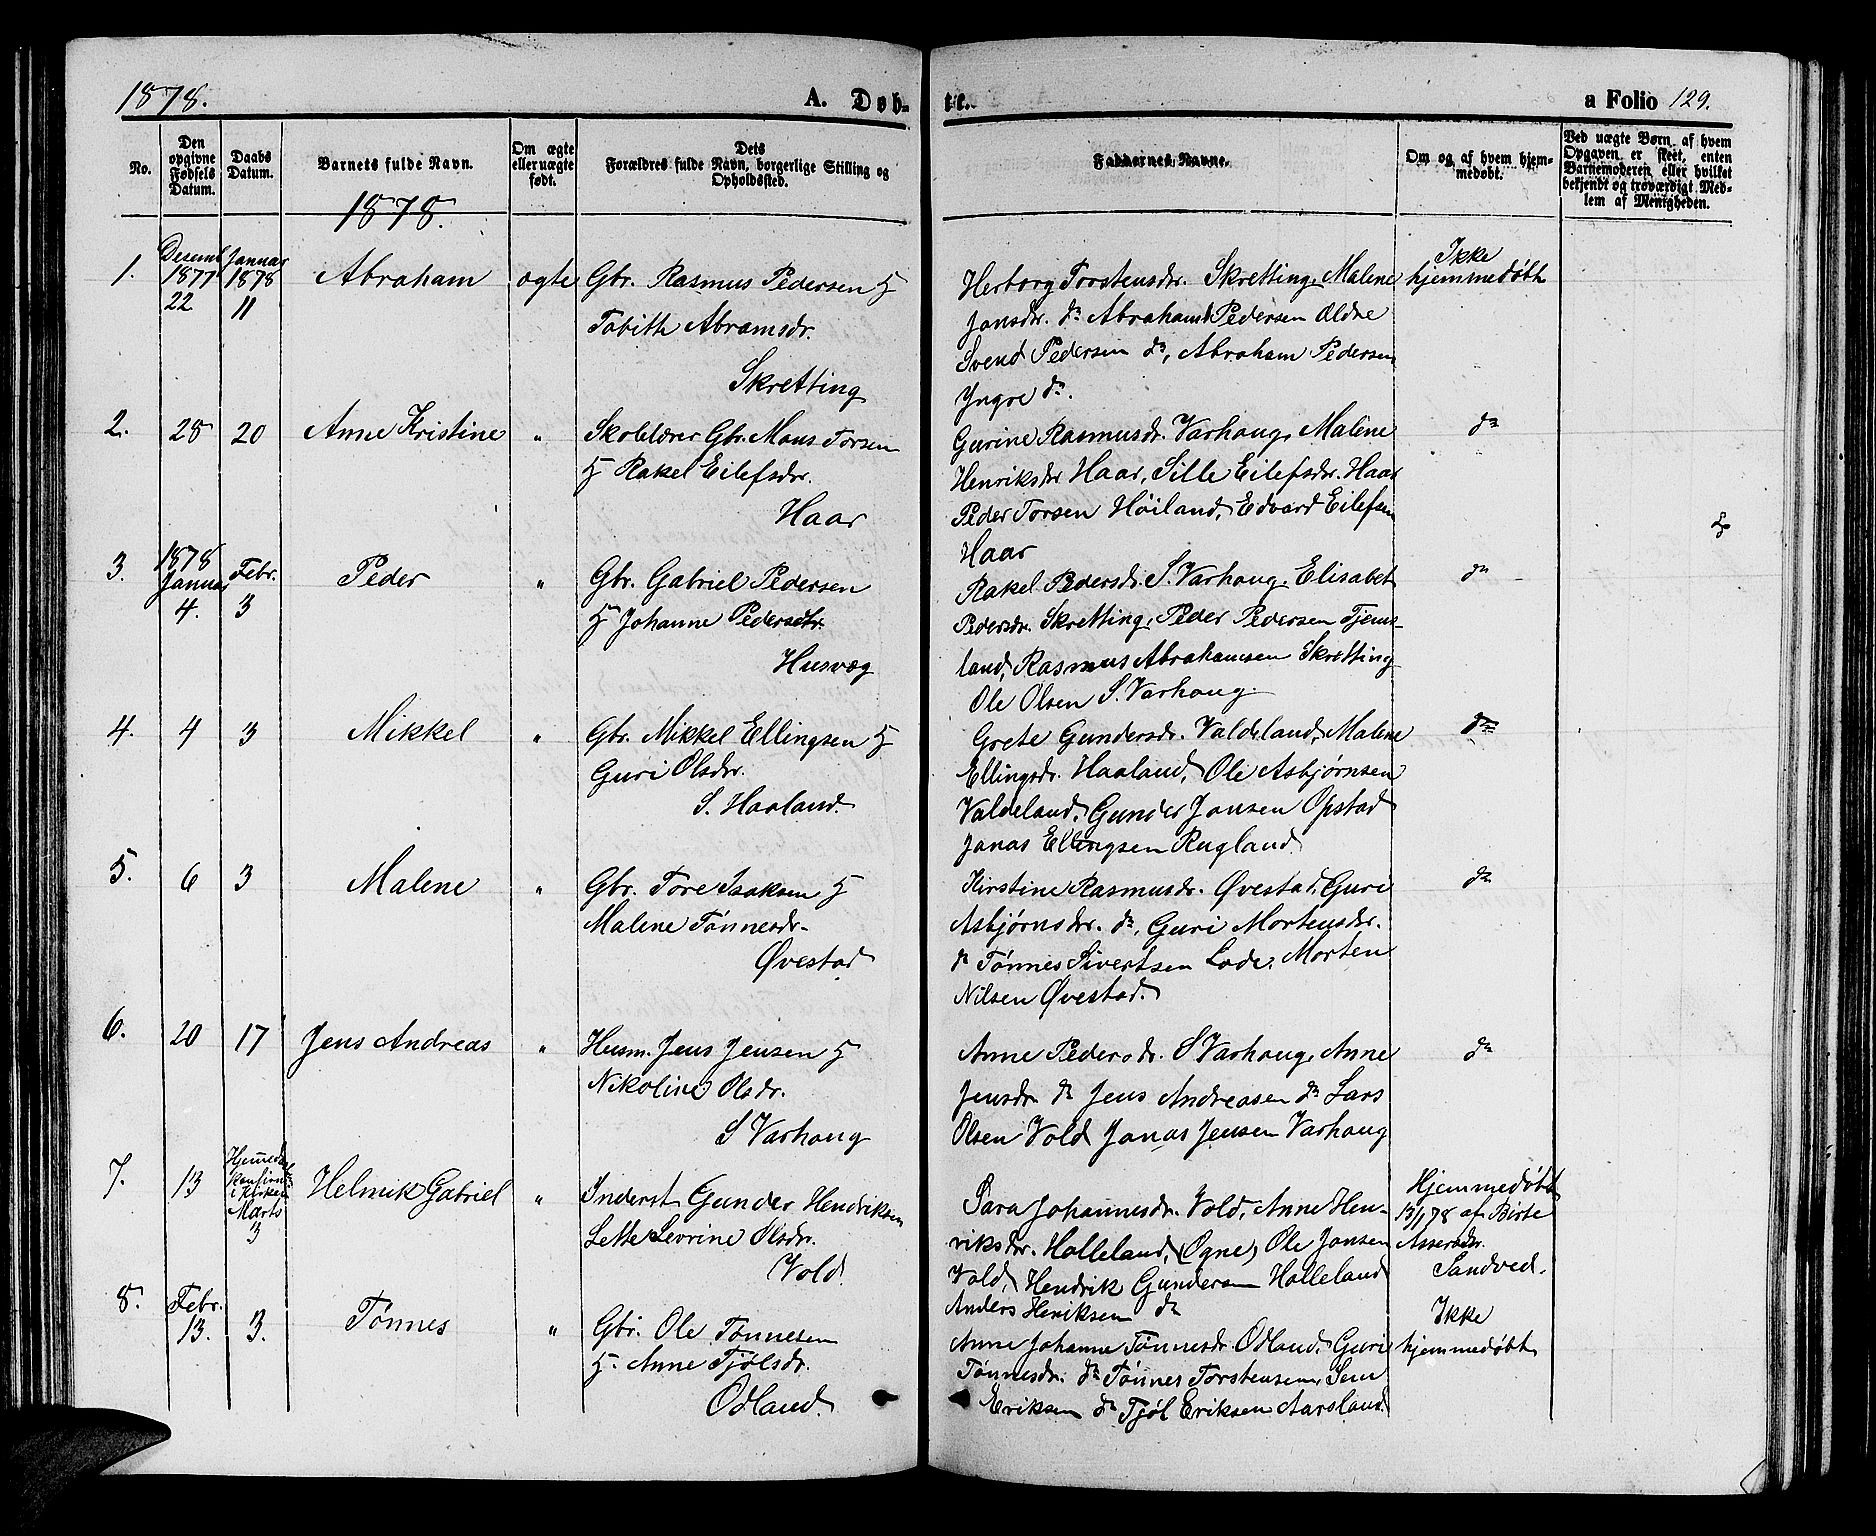 1878.
A. Døb-
te.
a Folio 129.
No.
Den opgivne Fødsels Datum.
Daabs Datum.
Barnets fulde Navn.
Om ægte eller uægte født.
Dets Forældres fulde Navn, borgerlige Stilling og Opholdssted.
Faddernes Navne.
Om og af hvem hjemmedøbt.
Ved uægte Børn, af hvem Opgaven er skeet, enten Barnemoderen eller hvilket bekjendt og troværdigt Medlem af Menigheden.
1878.
1.
Desemb
1877
22
Januar
1878
11
Abraham
ægte
Gbr. Rasmus Pedersen &
Tobith Abramsdr.
Skretting
Herborg Torstensdr. Skretting, Malene
Jonsdr. do Abraham Pedersen Ældre
Svend Pedersen do, Abraham Pedersen
Yngre do.
Ikke
hjemmedøbt
2.
28
20
Anne Kristine
"
Skolelærer Gbr. Mons Torsen
& Rakel Eilefsdr.
Haar
Gurine Rasmusdr. Varhaug, Malene
Henriksdr Haar, Sille Eilefsdr. Haar
Peder Torsen Høiland, Edvard Eilefsen
Haar
do
3.
1878
Januar
4.
Febr.
3
Peder
"
Gbr. Gabriel Pedersen
& Johanne Pedersdtr.
Husvæg
Rakel Pedersdr. S. Varhaug, Elisabet
Pedersdr. Skretting, Peder Pedersen Tjems-
land, Rasmus Abrahamsen Skretting
Ole Olsen S. Varhaug.
do
4.
4
3
Mikkel
"
Gbr. Mikkel Ellingsen &
Guri Olsdr.
S. Haaland.
Grete Gundersdr. Valdeland, Malene
Ellingsdr. Haaland, Ole Asbjørnsen
Valdeland, Gunder Jonsen Opstad
Jonas Ellingsen Rugland.
do
5.
6
3
Malene
"
Gbr. Tore Isaksen &
Malene Tønnesdr.
Øvestad
Kirstine Rasmusdr. Øvestad, Guri
Asbjørnsdr. do, Guri Mortensdr.
do Tønnes Sivertsen Lode, Morten
Nilsen Øvestad.
do
6.
20
17
Jens Andreas
"
Husm. Jens Jensen &
Nikoline Olsdr.
S Varhaug
Anne Pedersdr. S Varhaug, Anne
Jensdr do Jens Andreasen do Lars
Olsen Vold Jonas Jensen Varhaug
do
7.
13
i Kirken
Marts
3
Helmik Gabriel
"
Inderst Gunder Hendriksen
Lette Sevrine Olsdr.
Vold.
Sara Johannesdr. Vold, Anne Hen-
riksdr. Holleland, (Ogne) Ole Jonsen
Vold, Hendrik Gundersen Holleland
Anders Henriksen do
Hjemmedøbt
13/1 78 af Birte
Assersdr.
Sandved.
8.
Febr.
13.
3.
Tønnes
"
Gbr. Ole Tønnesen
& Anne Tjølsdr.
Ødland.
Anne Johanne Tønnesdr. Ødland, Guri
Tønnesdr. do Tønnes Torstensen,
Eriksen do Tjøl Eriksen Aarsland.
Ikke
hjemmedøbt